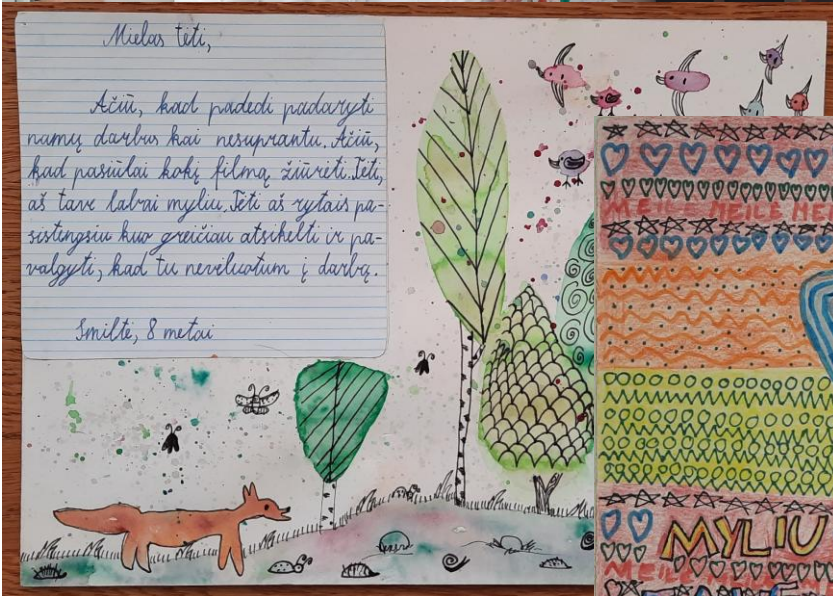 Mielas tėti,
Ačiū, kad padedi padaryti
namų darbus kai nesuprantu. Ačiū,
kad pasiūlai kokį filmą žiūrėti. Tėti,
aš tave labai myliu. Tėti aš rytais pa-
sistingsiu kuo greičiau atsikelti ir pa-
valgyti, kad tu nevėluotum į darbą.
Smiltė, 8 metai
MEILĖ MEILĖ MEI
MYLIU
MEILĖ